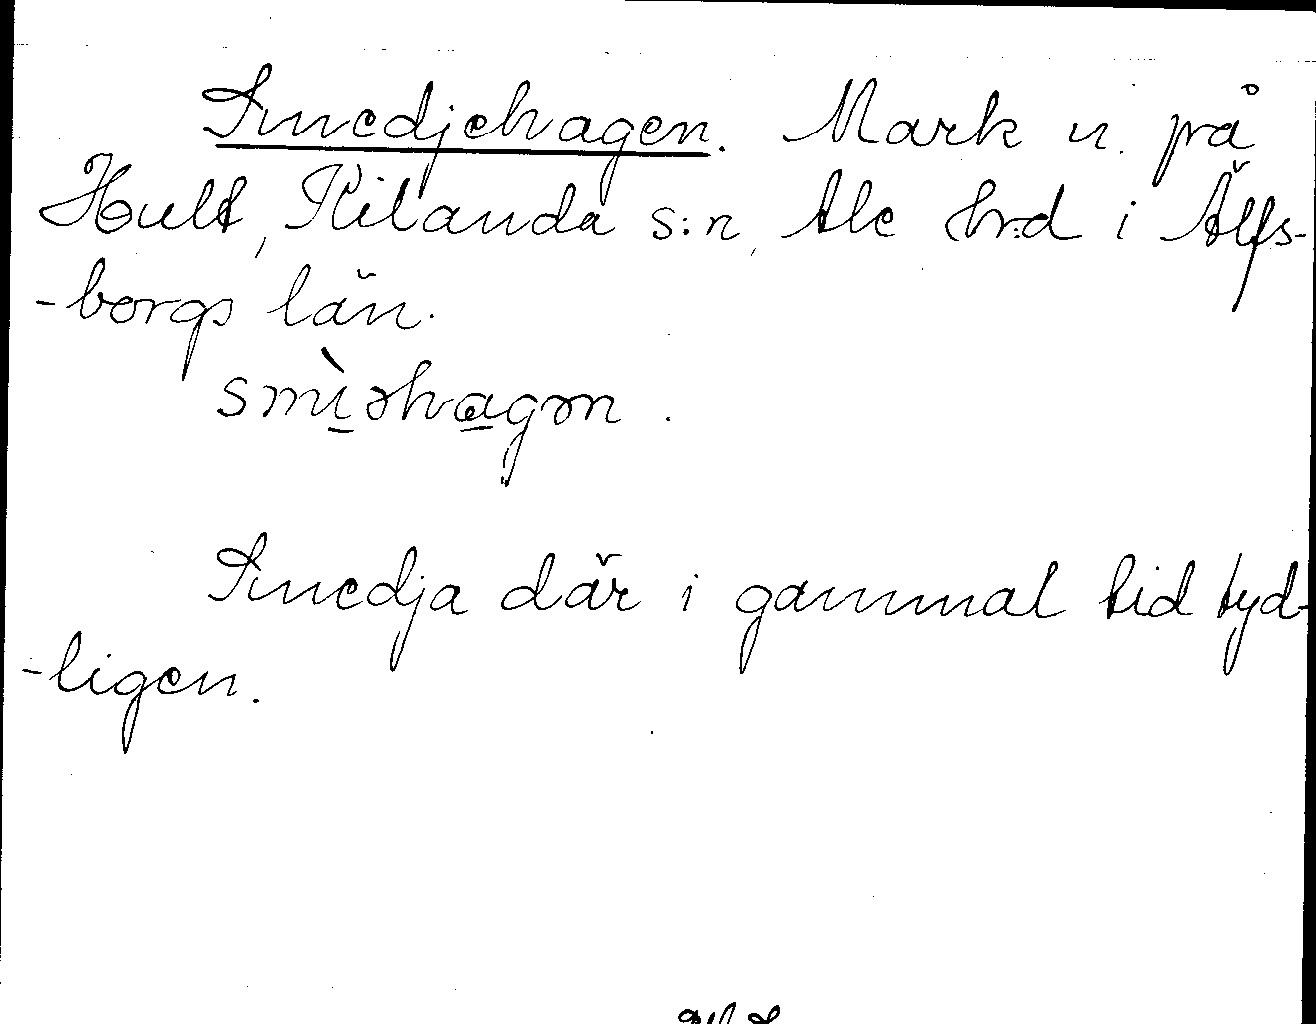 Smedjehagen. Mark n. på
Hult, Kilanda s:n, Ale hr:d i Älfs-
-borgs län.
smìəhagən.
Smedja där i gammal tid tyd-
-ligen.